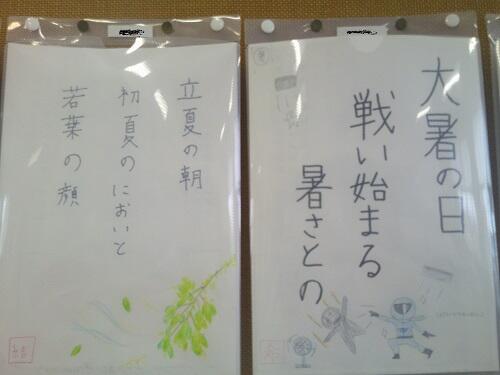 立夏の朝
初夏のにおいと
若葉の顔
大暑の日
戦い始まる
暑さとの